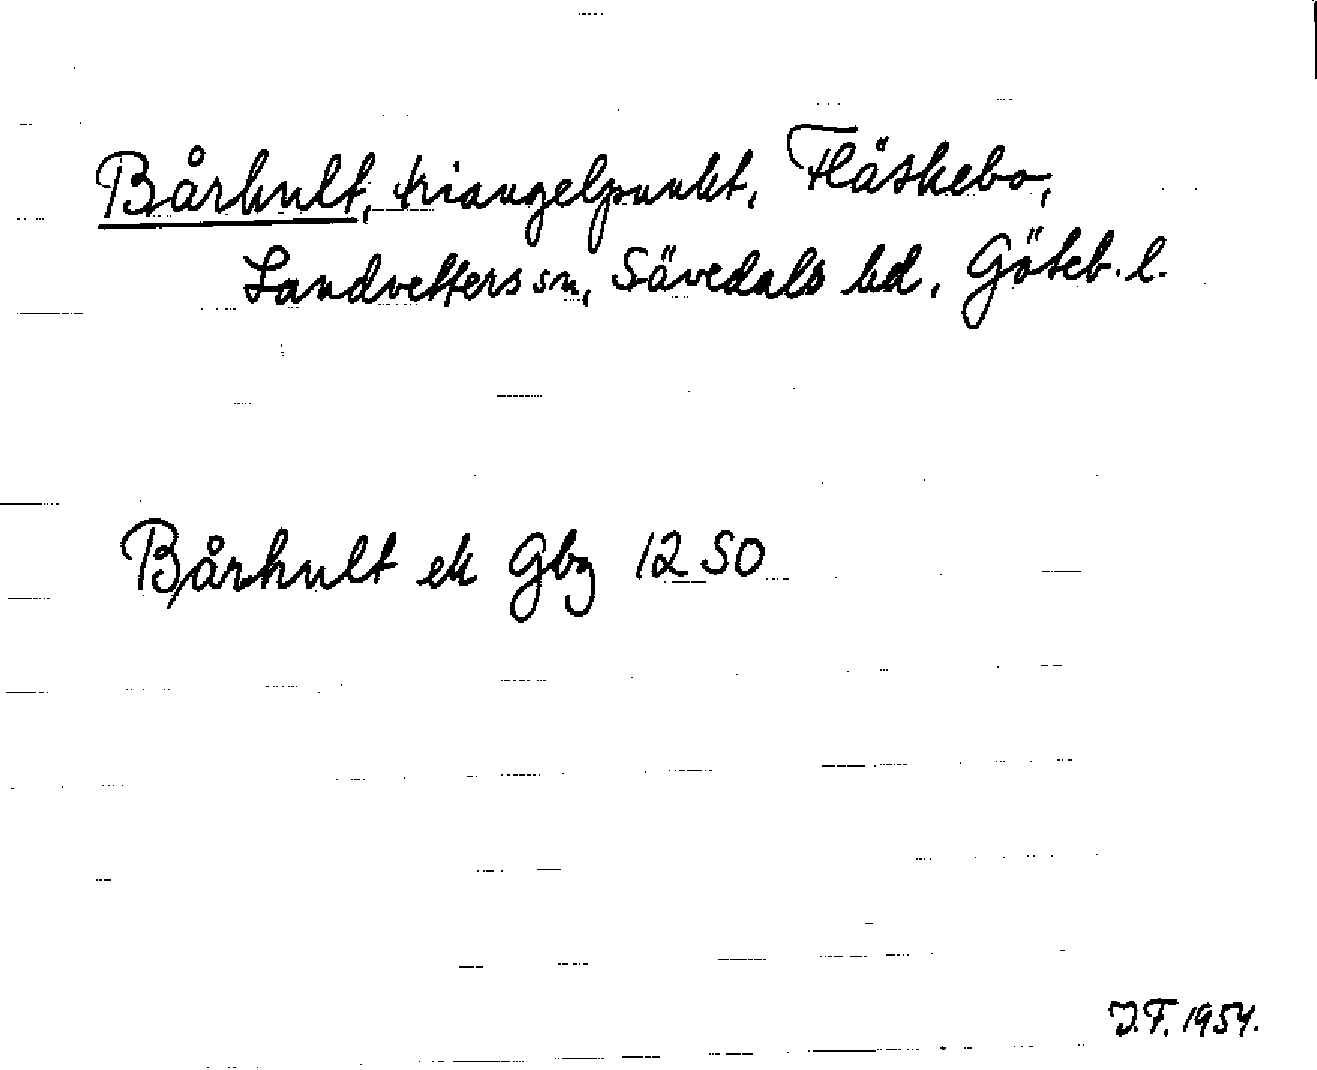 Bårhult, triangelpunkt, Fläskebo,
Landvetters sn, Sävedals hd, Göteb. l.
Bårhult ek Gbg 12 SO
J.F. 1954.